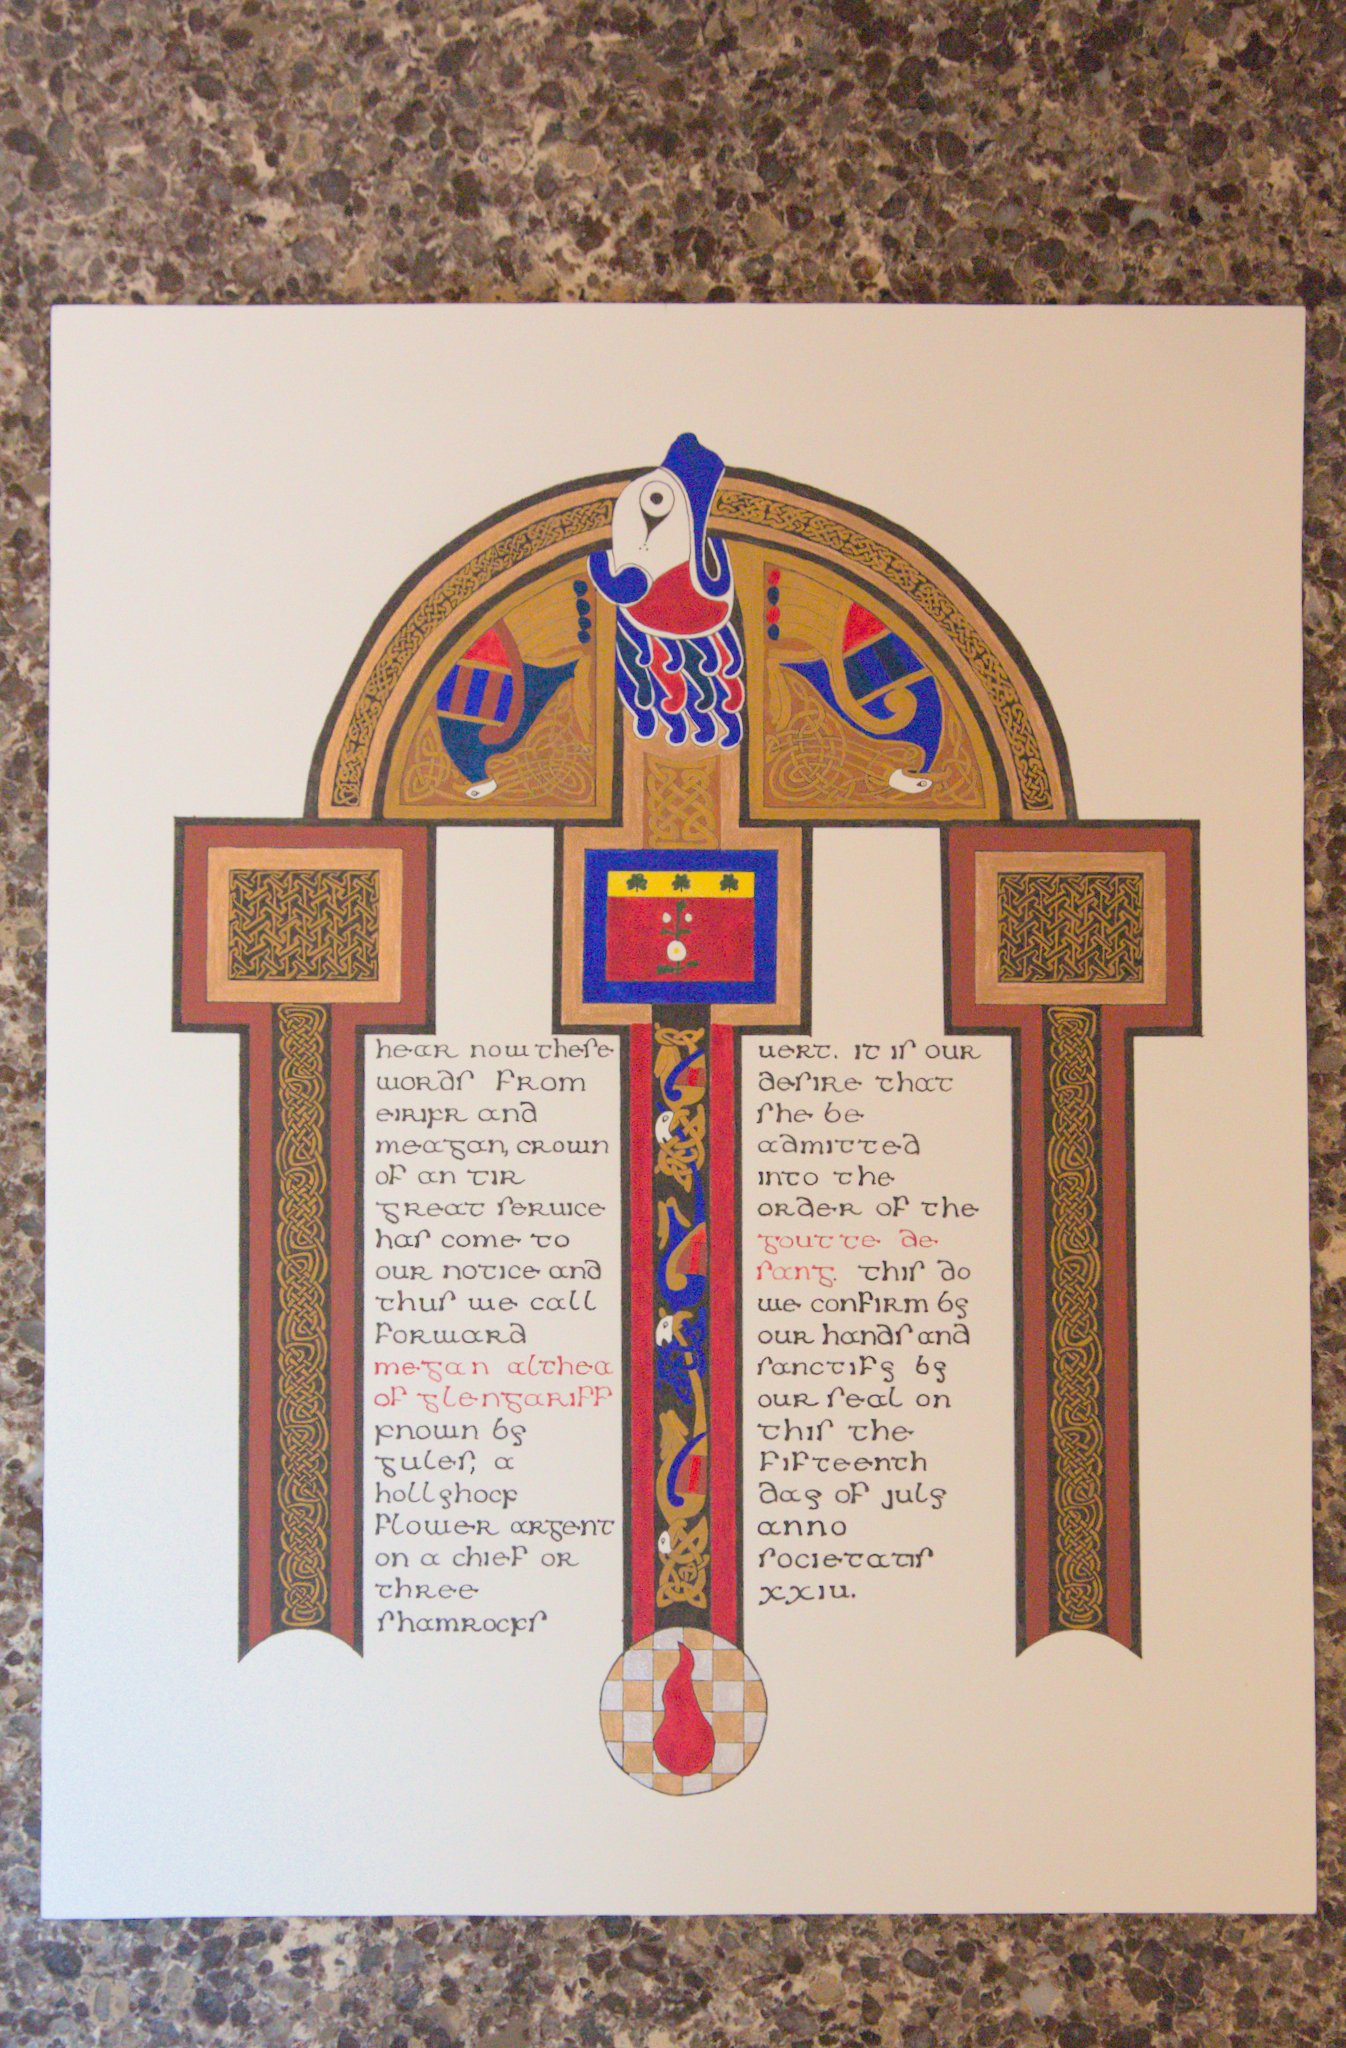 hear now these
words from
eirikr and
meagan, crown
of an tir
great service
has come to
our notice and
thus we call
forward
megan althea
of glengariff
known by
gules, a
hollyhock
flower argent
on a chief or
three
shamrocks
vert. it is our
desire that
she be
admitted
into the
order of the
goutte de
sang. this do
we confirm by
our hands and
sanctify by
our seal on
this the
fifteenth
day of july
anno
societatis
xxiv.